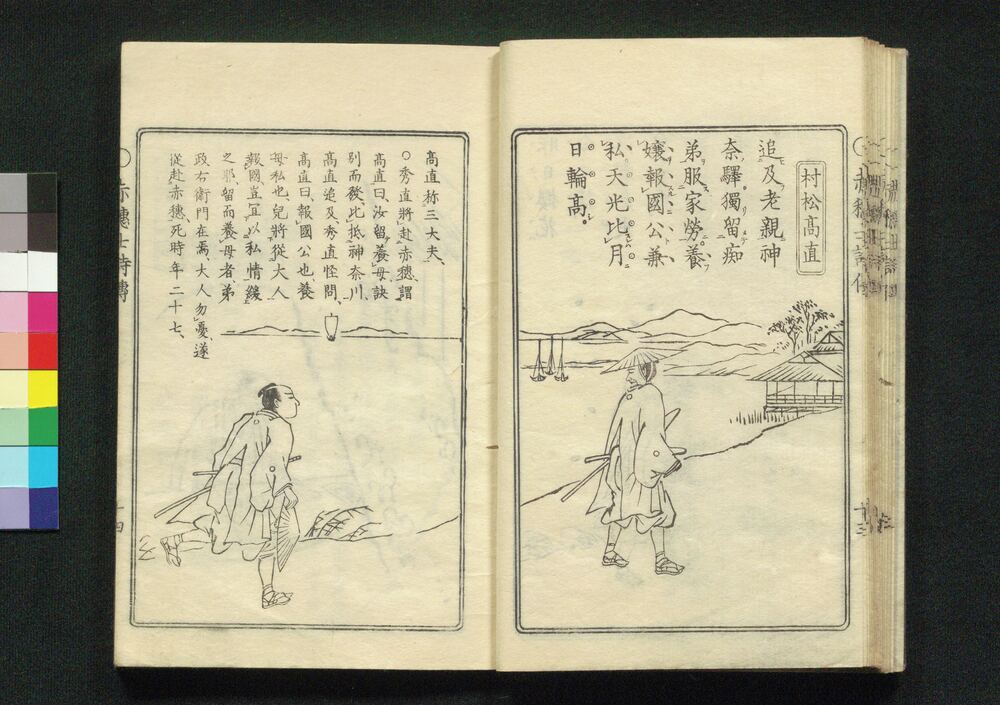 村松高直
追及老親神
奈驛獨留痴
弟服家勞養
孃報國公兼
私天光比月
日輪高
高直称三大夫、
○秀直將赴赤穗謂
高直曰、汝留養母訣
別而發比抵神奈川、
高直追及秀直怪問、
高直曰、報國公也、養
母私也、兒將從大人
報國豈宜以私情緩
之耶、留而養母者弟
政右衛門在焉、大人勿憂、遂
從赴赤穗、死時年二十七、
○赤穗士詩傳
十四
十三